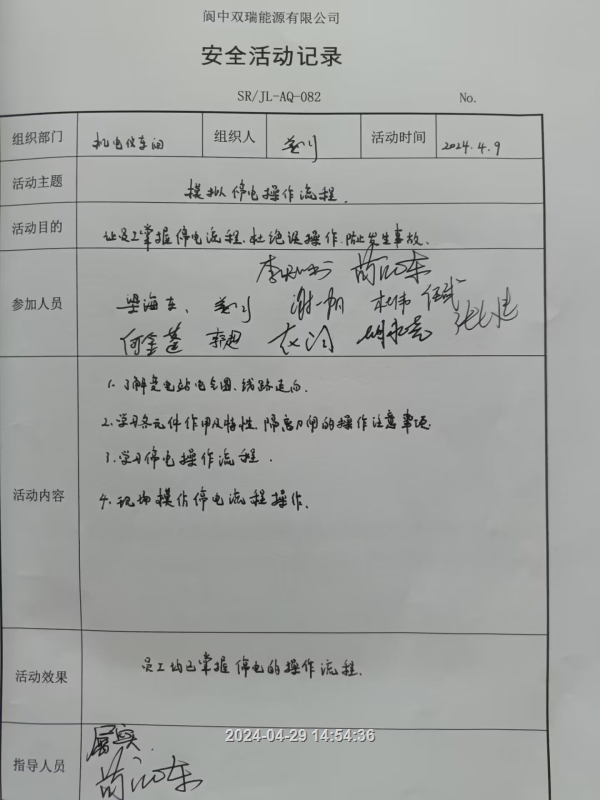 阆中双瑞能源有限公司
安全活动记录
SR/JL-AQ-082 No.
组织部门 机电仪车间 组织人 活动时间 2024.4.9
活动主题 模拟停电操作流程.
活动目的 让员工掌握停电流程.杜绝误操作.防止发生事故.
参加人员
梁海东、 谢一帆 杜伟 伍斌
何金蓬 郭超
活动内容
1.了解变电站电气图、线路走向.
2.学习各元件作用及特性.隔离刀闸的操作注意事项.
3.学习停电操作流程.
4.现场模仿停电流程操作.
活动效果 员工均已掌握停电的操作流程.
2024-04-29 14:54:36
指导人员 属实.